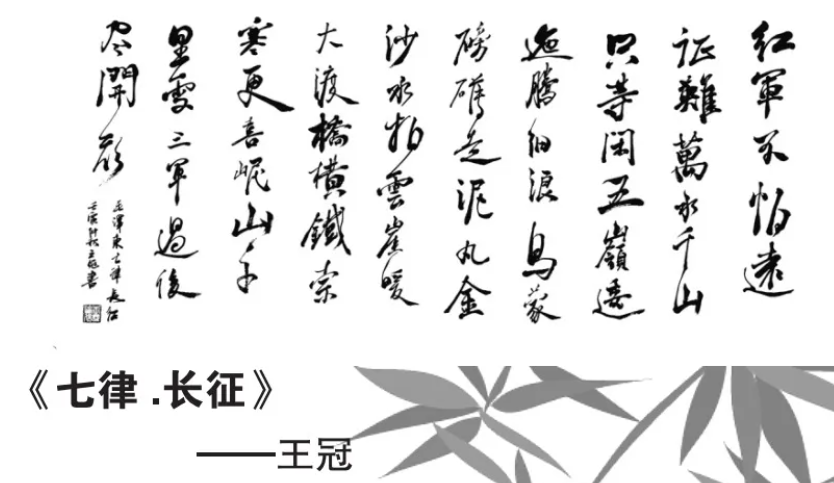 红軍不怕遠
征難萬水千山
只等閑五嶺逶
迤騰细浪烏蒙
磅礴走泥丸金
沙水拍雲崖暖
大渡橋横鐵索
寒更喜岷山千
里雪三軍過後
尽開颜
毛澤東七律長征
《七律.长征》
——王冠